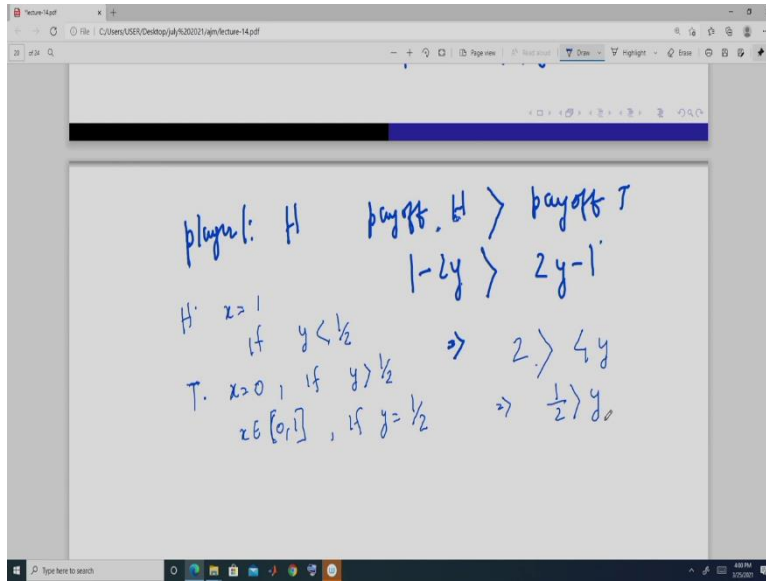 "lecture-14.pdf
File | C:/Users/USER/Desktop/july%202021/ajm/lecture-14.pdf
20 of 24 Page view Read aloud Draw Highlight Erase
player 1: H payoff. H > payoff T
1-2y > 2y-1
H: x=1
if y<1/2 => 2 > 4y
T. x=0, if y>1/2
x∈[0,1], if y=1/2 => 1/2 > y
Type here to search
4:00 PM
3/25/2021